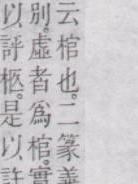 云棺也。二篆義
別。虛者爲棺。實
以、評柩。是以、許